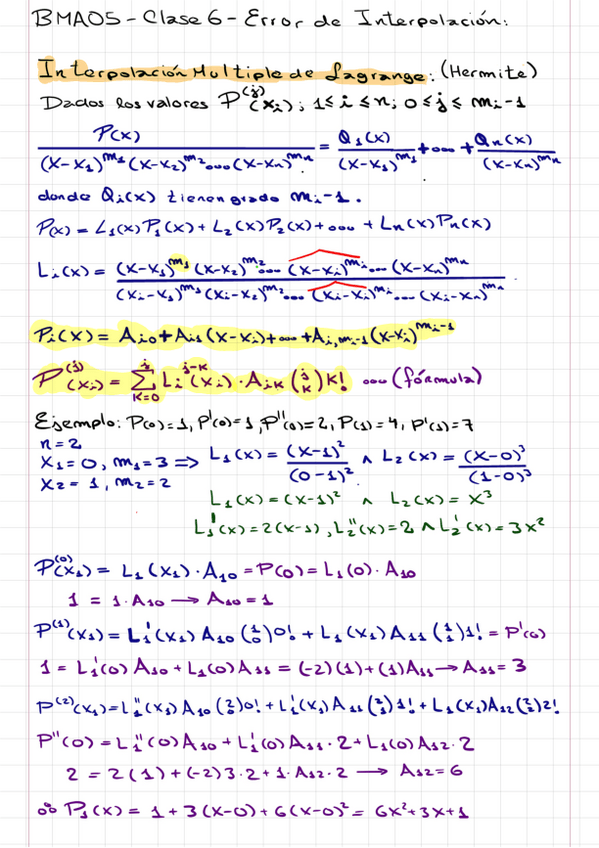 BMA05 - Clase 6 - Error de Interpolación:
Interpolación Multiple de Lagrange: (Hermite)
Dados los valores P^(j)(xi); 1 ≤ i ≤ n; 0 ≤ j ≤ mi-1
P(x) / (x-x1)^m1 (x-x2)^m2 ... (x-xn)^mn = Q1(x) / (x-x1)^m1 + ... + Qn(x) / (x-xn)^mn
donde Qi(x) tienen grado mi-1.
P(x) = L1(x)P1(x) + L2(x)P2(x) + ... + Ln(x)Pn(x)
Li(x) = (x-x1)^m1 (x-x2)^m2 ... (x-xi)^mi ... (x-xn)^mn / (xi-x1)^m1 (xi-x2)^m2 ... (xi-xi)^mi ... (xi-xn)^mn
Pi(x) = Ai0 + Ai1(x-xi) + ... + Ai,mi-1(x-xi)^mi-1
P^(j)(xi) = Σ_{k=0}^{j} Li^{j-k}(xi) · Aik (j k) k! ... (fórmula)
Ejemplo: P(0)=1, P'(0)=1, P''(0)=2, P(1)=4, P'(1)=7
n=2
x1=0, m1=3 => L1(x) = (x-1)^2 / (0-1)^2 ∧ L2(x) = (x-0)^3 / (1-0)^3
x2=1, m2=2
L1(x) = (x-1)^2 ∧ L2(x) = x^3
L1'(x) = 2(x-1), L1''(x) = 2 ∧ L2'(x) = 3x^2
P^(0)(x1) = L1(x1) · A10 = P(0) = L1(0) · A10
1 = 1 · A10 → A10 = 1
P^(1)(x1) = L1'(x1) A10 (1 0) 0! + L1(x1) A11 (1 1) 1! = P'(0)
1 = L1'(0) A10 + L1(0) A11 = (-2)(1) + (1) A11 → A11 = 3
P^(2)(x1) = L1''(x1) A10 (2 0) 0! + L1'(x1) A11 (2 1) 1! + L1(x1) A12 (2 2) 2!
P''(0) = L1''(0) A10 + L1'(0) A11 · 2 + L1(0) A12 · 2
2 = 2(1) + (-2)3·2 + 1·A12·2 → A12 = 6
∴ P1(x) = 1 + 3(x-0) + 6(x-0)^2 = 6x^2 + 3x + 1